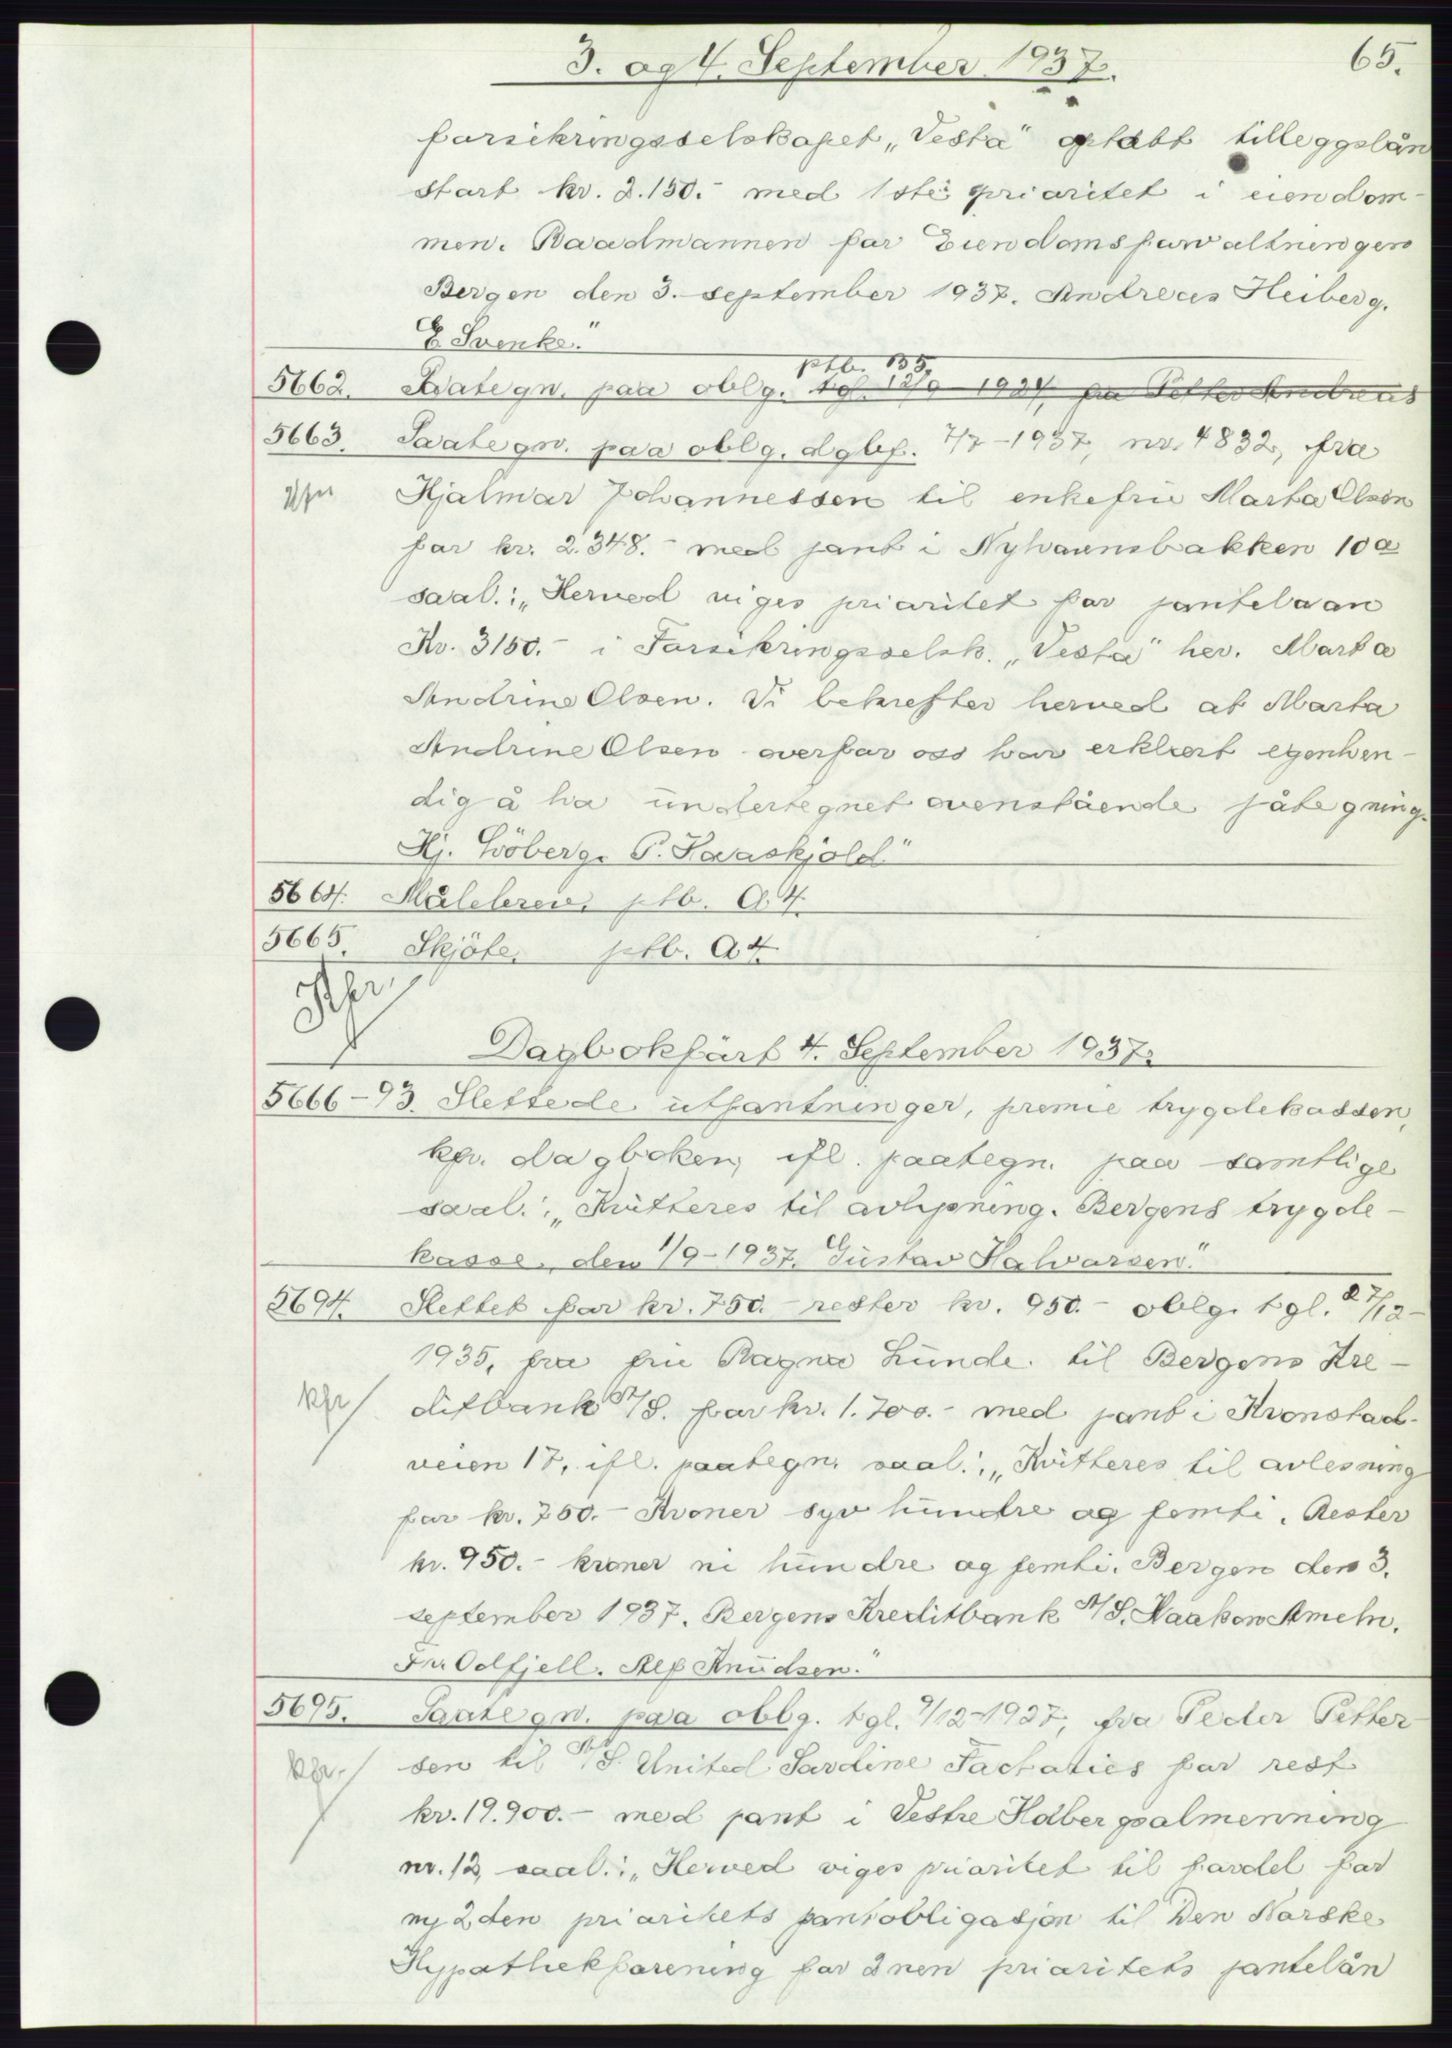 3. og 4. September 1937.
65.
forsikringsselskapet „Vesta" optatt tilleggslån
stort kr. 2.150.- med 1ste prioritet i eiendom-
men. Raadmannen for Eiendomsforvaltningen
Bergen den 3. september 1937. Andreas Heiberg.
E. Svenke."
ptb. B5.
5662. Paategn. paa oblg. tgl. 12/9-1924, fra Petter Andreas
5663. Paategn. paa oblg. dgbf. 7/7-1937, nr. 4832, fra
Kfr
Hjalmar Johannessen til enkefru Marta Olsen
for kr. 2.348.- med pant i Nyhavnsbakken 10a
saal.: „Herved viges prioritet for pantelaan
Kr. 3150.- i Forsikringsselsk. „Vesta" her. Marta
Andrine Olsen. Vi bekrefter herved at Marta
Andrine Olsen overfor oss har erklært egenhen-
dig å ha undertegnet ovenstående påtegning.
Hj. Löberg. P. Haaskjold"
5664. Målebrev, ptb. A.4.
5665. Skjöte, ptb. A4
Kfr.
Dagbokfört 4. September 1937.
5666-93. Slettede utpantninger, premie trygdekassen,
kfr. dagboken, ifl. paategn. paa samtlige
saal.: „Kvitteres til avlysning. Bergens trygde-
kasse, den 1/9-1937. Gustav Halvorsen."
5694. Slettet for kr. 750.- rester kr. 950.- oblg. tgl. 27/12-
1935, fra fru Ragna Lunde til Bergens Kre-
kfr
ditbank A/S. for kr. 1.700.- med pant i Kronstad-
veien 17, ifl. paategn. saal.: „Kvitteres til avlesning
for kr. 750.- Kroner syv hundre og femti. Rester
kr. 950.- kroner ni hundre og femti. Bergen den 3.
september 1937. Bergens Kreditbank A/S. Haakon Ameln.
Fr. Odfjell. Alf Knudsen."
5695. Paategn. paa oblg. tgl. 9/12-1927, fra Peder Petter-
kfr.
sen til A/S. United Sardine Factories for rest
kr. 19.900.- med pant i Vestre Holbergsalmenning
nr. 12, saal.: „Herved viges prioritet til fordel for
ny 2den prioritets pantobligasjon til Den Norske
Hypothekforening for annen prioritets pantelån